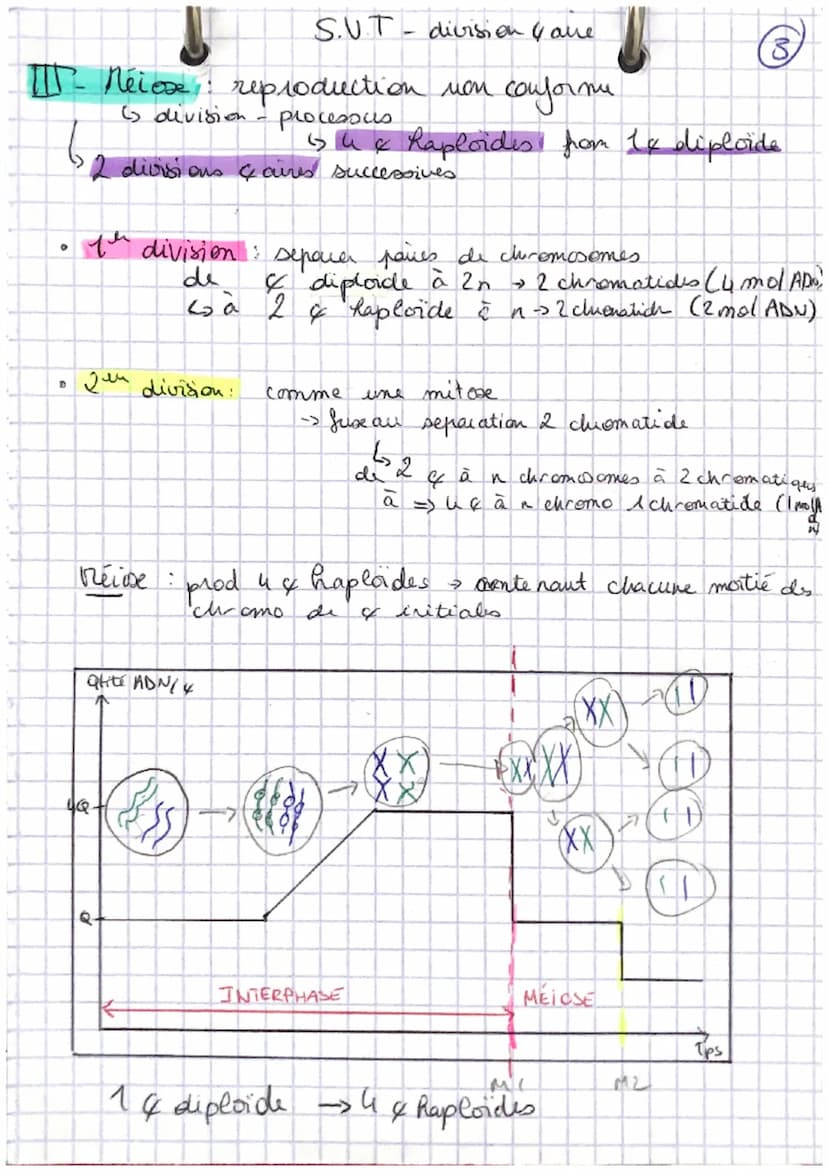 S.V.T - division ¢aire
3
III - Méiose : reproduction non conforme
↳ division - processus
↳ 4 ¢ haploïdes from 1¢ diploïde
↳ 2 divisions ¢aires successives
• 1er division : separer paires de chromosomes
de ¢ diploïde à 2n → 2 chromatides (4 mol ADN)
↳ à 2 ¢ haploïde à n → 2 chromatid (2 mol ADN)
• 2em division : comme une mitose
→ fuseau separation 2 chromatide
↳
de 2 ¢ à n chromosomes à 2 chromatiques
à ⇒ 4 ¢ à n chromo 1 chromatide (1 mol ADN
Méiose : prod 4 ¢ haploïdes → contenant chacune moitié des
chromo de ¢ initiales
Qtité ADN/¢
4Q
Q
INTERPHASE
MÉIOSE
Tps
M1
M2
1 ¢ diploïde → 4 ¢ haploïdes